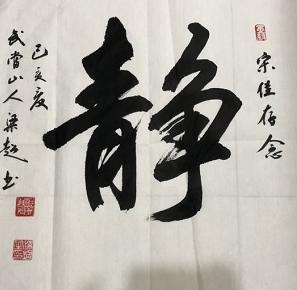 宗佳存念
静
己亥夏
武当山人梁超书